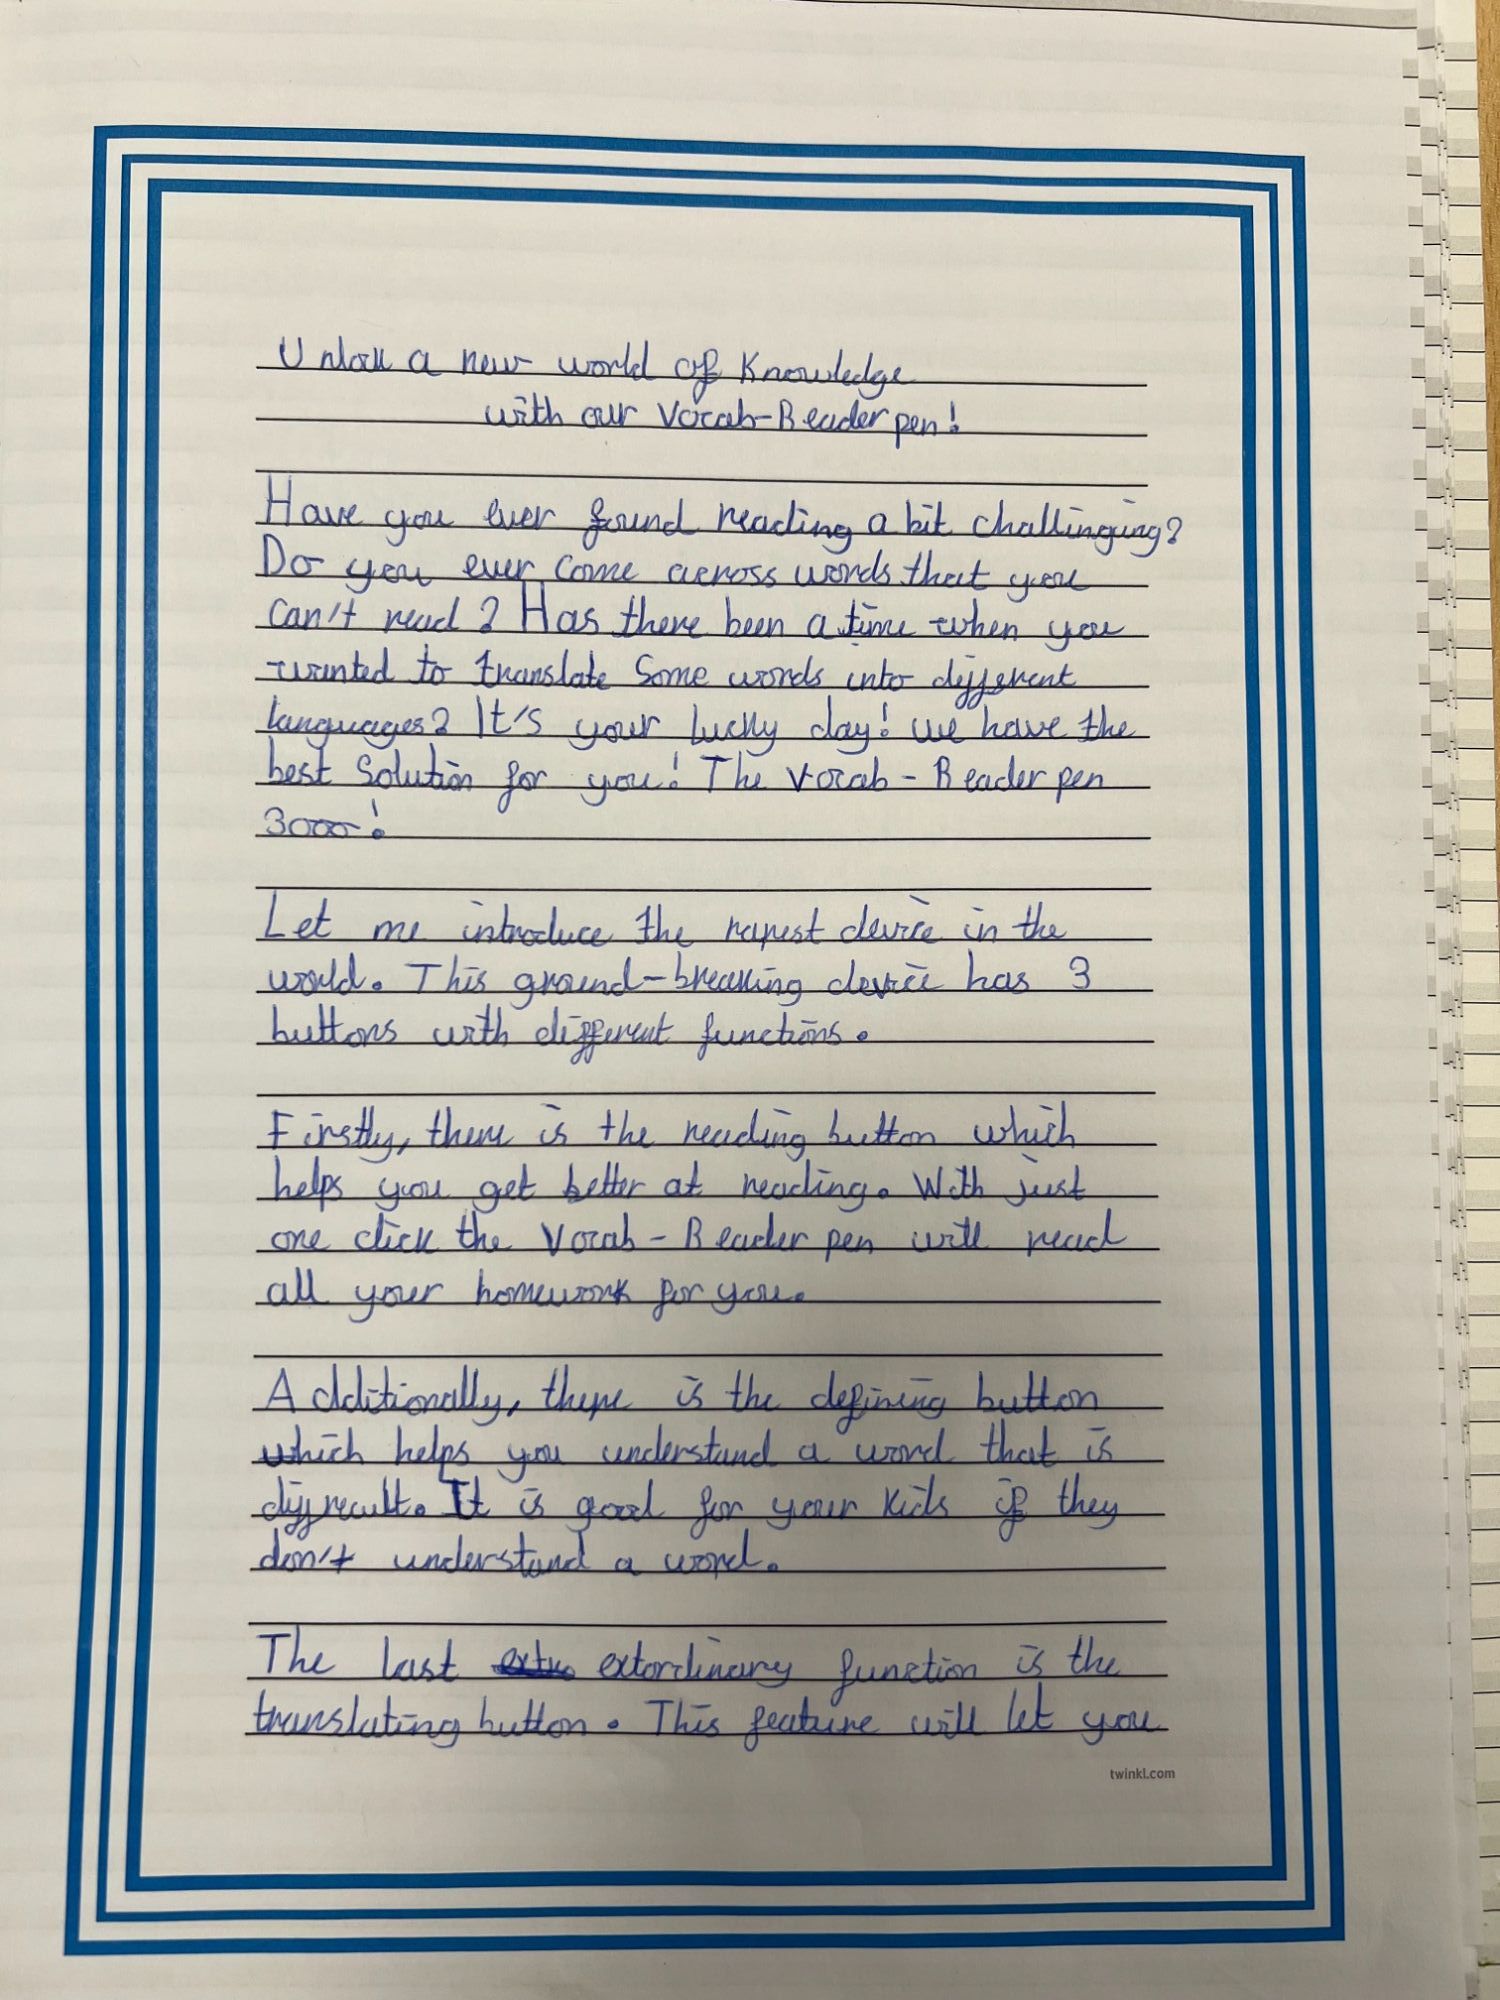 Unlock a new world of Knowledge
with our Vocab-Reader pen!
Have you ever found reading a bit challinging?
Do you ever come across words that you
can't read? Has there been a time when you
wanted to translate some words into different
languages? It's your lucky day! We have the
best solution for you! The Vocab-Reader pen
3000!
Let me introduce the rarest device in the
world. This ground-breaking device has 3
buttons with different functions.
Firstly, there is the reading button which
helps you get better at reading. With just
one click the Vocab-Reader pen will read
all your homework for you.
Additionally, there is the defining button
which helps you understand a word that is
difficult. It is good for your kids if they
don't understand a word.
The last extordinary function is the
translating button. This feature will let you
twinkl.com